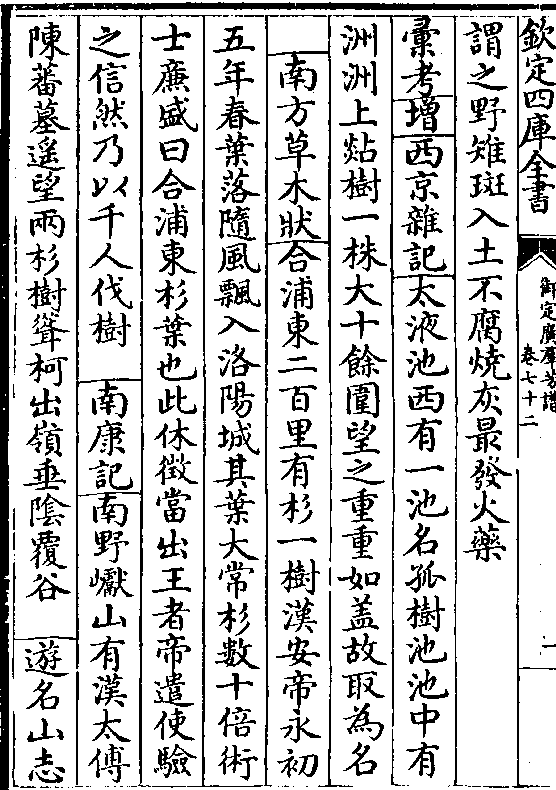 欽定四庫全書
御定廣羣芳譜
卷七十二
一
謂之野雉斑入土不腐燒灰最發火藥
彚考增西京雜記太液池西有一池名孤樹池池中有
洲洲上㸃樹一株大十餘圍望之重重如盖故取為名
南方草木狀合浦東二百里有杉一樹漢安帝永初
五年春葉落隨風飄入洛陽城其葉大常杉數十倍術
士亷盛曰合浦東杉葉也此休徴當出王者帝遣使驗
之信然乃以千人伐樹 南康記南野巘山有漢太傅
陳蕃墓遥望兩杉樹聳柯出嶺垂陰覆谷 遊名山志